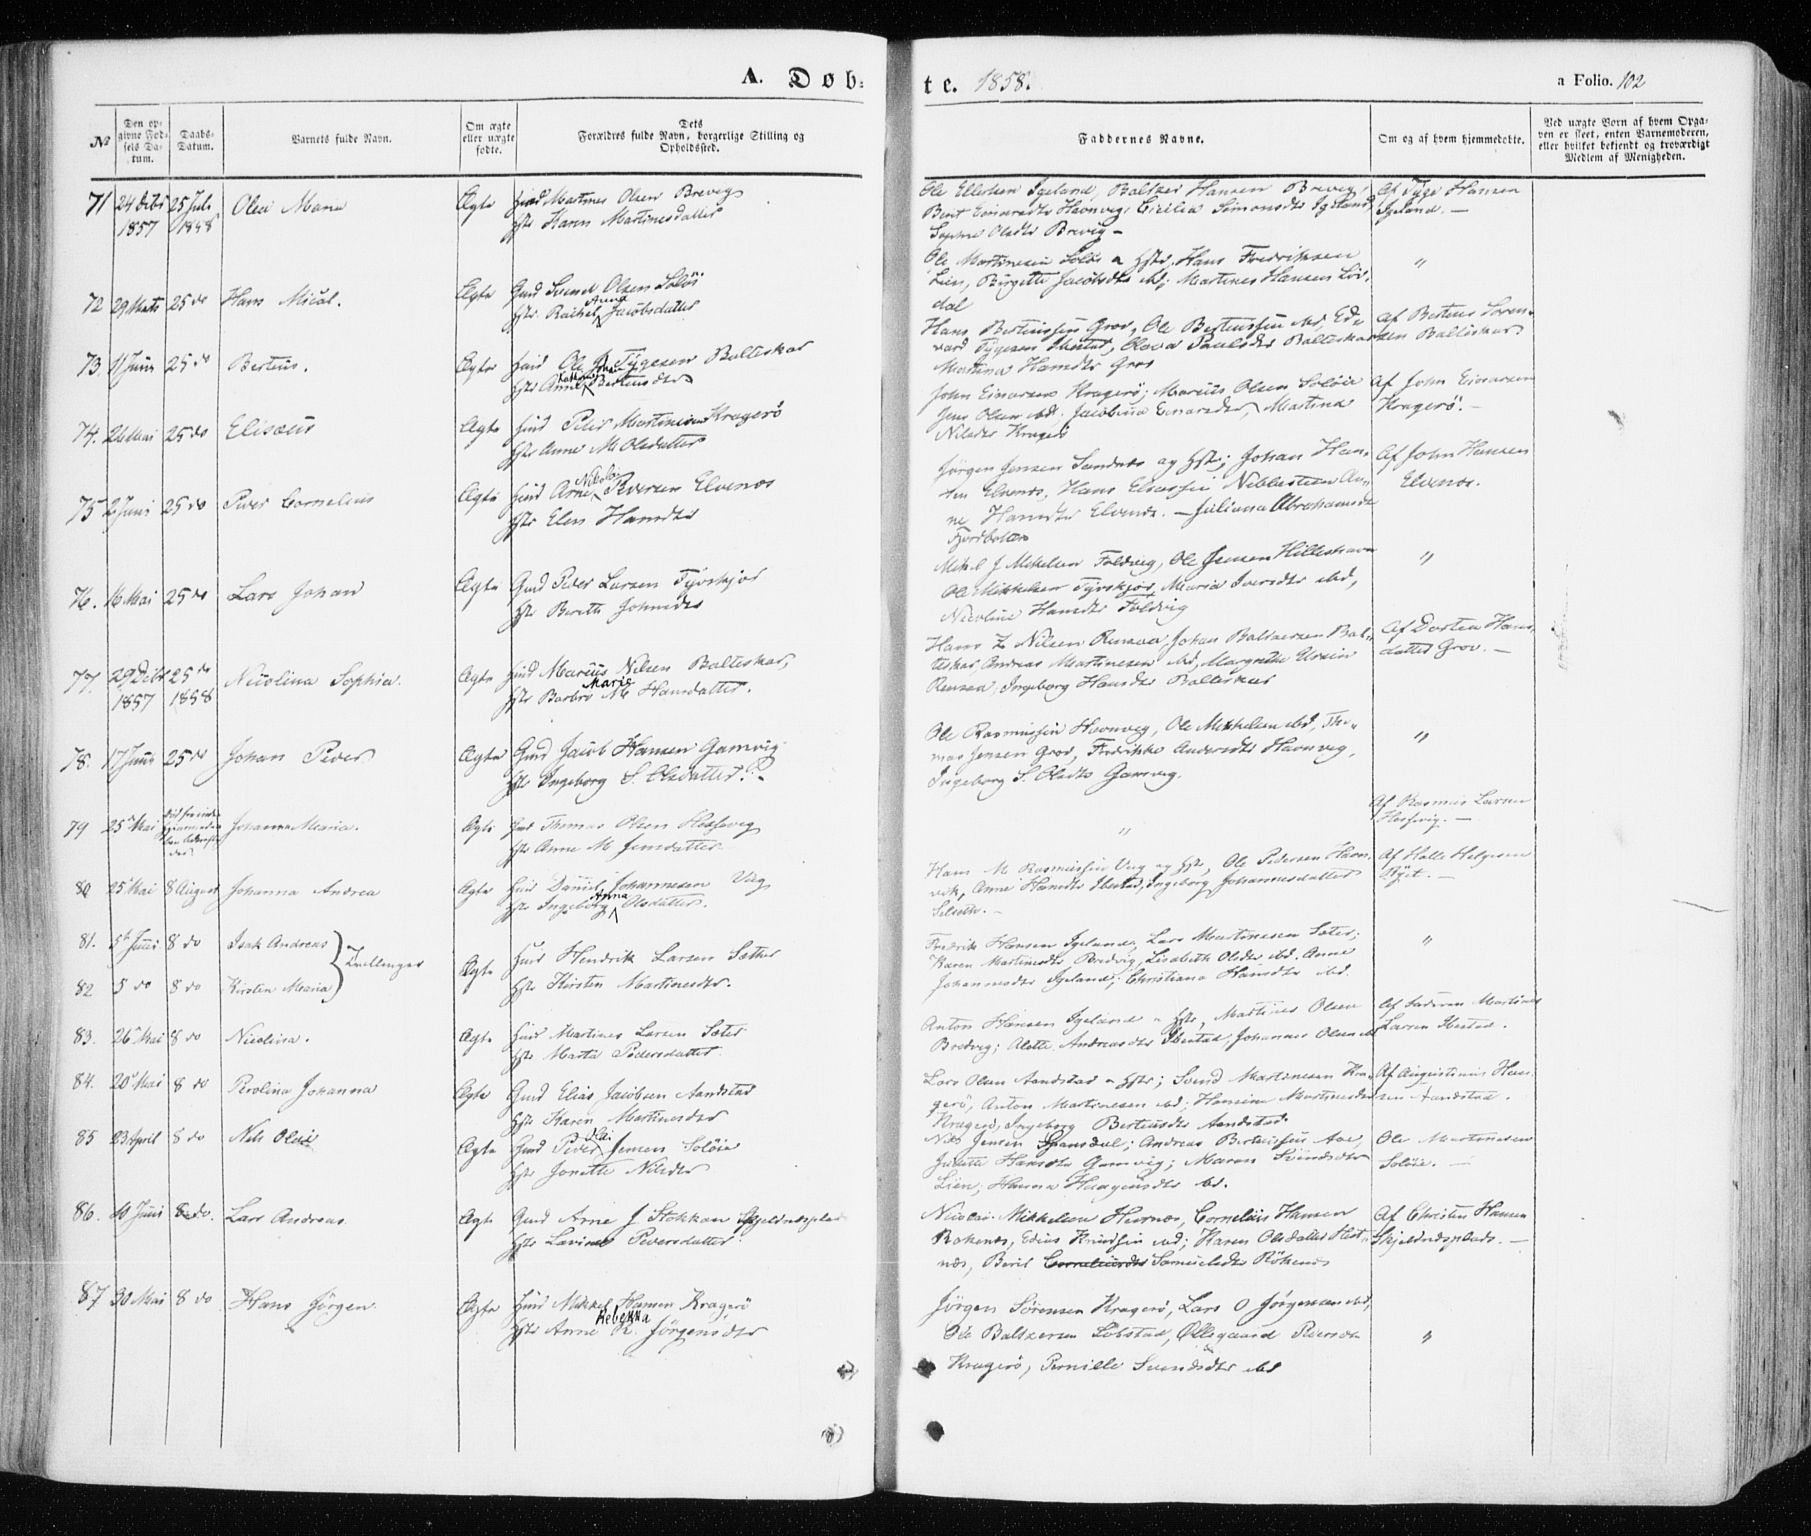 A. Døb-
te. 1858.
a Folio. 102
№
Den op-
givne Fød-
sels Da-
tum.
Daabs-
Datum.
Barnets fulde Navn.
Om ægte
eller uægte
fødte.
Dets
Forældres fulde Navn, borgerlige Stilling og
Opholdssted.
Faddernes Navne.
Om og af hvem hjemmedøbte.
Ved uægte Born af hvem Opga-
ven er skeet, enten Barnemoderen,
eller hvilket bekjendt og troværdigt
Medlem af Menigheden.
71 24 Octbr 25 Juli Olea Maria Ægte Huusd Martines Olsen Brevig
1857 1858 Hstr Karen Martinesdatter
Ole Ellertsen Igeland, Baltzer Hansen Brevig,
Berit Einarsdtr Havnvig, Cicilia Simonsdtr Igeland
Sophie Olsdtr Brevig -
Af Tyge Hansen
Igeland. -
72 29 Marts 25 do Hans Mical. Ægte Gmd Svend Olsen Soløi
Hstr. Rachel Anna Jacobsdatter
Ole Martinesen Soløi & Hstr, Hans Fredriksen
Lien, Birgitte Jacobsdtr ibd; Martines Hansen Løv-
dal
"
73. 11 Juni 25 do Bertius. Ægte Huusd Ole Johan Tygesen Balteskar
Hstr Anne Bertiusdtr
Hans Bertiussen Grov, Ole Bertiussen ibd, Ed-
vard Tygesen Ibestad, Olava Paulsdtr Balteskar
Martina Hansdtr Grov
Af Bertius Soren-
sen Balteskar
74. 24 Mai 25 do Elisæus Ægte Huusd Peder Martinesen Kragerö
Hstr Anne M Olsdatter
John Einarsen Kragerö; Marius Olsen Soløie
Jens Olsen ibd. Jacobina Einarsdtr, Martina
Nilsdtr Kragerö
Af John Einarsen
Kragerö. -
75 2 Juni 25 do Peder Cornelius Ægte Huusd Arne Nikolai Pedersen Elvenes
Hstr Elen Hansdtr
Jørgen Jensen Sandnes og Hstr; Johan Han-
sen Elvenes, Hans Eliassen Nibbesteen An-
ne Hansdtr Elvenes. - Juliana Abrahamsdtr
Fjordbotten
Af John Hansen
Elvenes.
76. 16 Mai 25 do Lars Johan Ægte Gmd Peder Larsen Tyvskjær
Hstr Bereth Johnsdtr
Mikal J Mikelsen Foldvig, Ole Jensen Hilleshavn
Ole Mikkelsen Tyvskjær, Maria Iversdtr ibd,
Nicoline Hansdtr Foldvig
"
77. 29 Octbr 25 do Nicolina Sophia. Ægte Huusd Marius Nilsen Balteskar,
1857 1858 Hstr Barbro Marie M Hansdatter.
Hans Z Nilsen Rensaa, Johan Baltzersen Bal-
teskar, Andreas Martinesen ibd, Margrethe
Rensaa, Ingeborg Hansdtr Balteskar
Af Dortea Hans-
datter Grov. -
78. 17 Juni 25 do Johan Peder Ægte Gmd Jacob Hansen Gamvig
Hstr Ingeborg S. Olsdatter. -
Ole Rasmussen Havnvig, Ole Mikkelsen ibd, Tho-
mas Jensen Grov, Fredrikke Andersdtr Havnvig,
Ingeborg S. Olsdtr Gamvig.
"
79 25 Mai Johanna Maria. Ægte Gmd Thomas Olsen
Hstr Anne M Jensdatter
"
Af Rasmus Larsen
80 25 Mai 8 August Johanna Andrea Ægte Huusd Daniel Johannesen Vig
Hstr Ingeborg Anna Olsdatter.
Hans M Rasmussen Vig og Hstr, Ole Pedersen Havn-
vik, Anne Hansdtr Ibestad, Ingeborg Johannesdatter
Selseth. -
Af Halle Helgesen
81. 5 Juni 8 do Isak Andreas } Tvillinger Ægte Huusd Hendrik Larsen Sæther
82 5 do 8 do Kirsten Maria Hstr Kirsten Martinesdtr.
Fredrik Hansen Igeland, Lars Martinesen Sæter;
Karen Martinesdtr Bredvig, Lisabeth Olsdtr ibd. Anne
Johannesdtr Igeland; Christiana Hansdtr ibd.
"
83. 26 Mai 8 do Nicolina. Ægte Huusd Martines Larsen Sæter
Hstr Marta Pedersdatter
Anton Hansen Igeland & Hstr, Martines Olsen
Bredvig; Alette Andreasdtr Ibestad, Johannes Olsen ibd
Af Faderen Martines
Larsen Ibestad.
84. 20 Mai 8 do Perolina Johanna Ægte Gmd Elias Jacobsen Aandstad
Hstr Karen Martinesdtr
Lars Olsen Aandstad & Hstr; Svend Martinesen Kra-
gerö, Anton Martinesen ibd; Hansina Martinesdtr
Kragerö, Ingeborg Bertiusdtr Aandstad.
Af Augustinus Han-
sen Aandstad.
85 23 April 8 do Nils Olai Ægte Gmd Peder Olai Jensen Soløie
Hstr Jonette Nilsdtr
Nils Jensen Spansdal; Andreas Bertiussen Aae,
Juditte Hansdtr Gamvig; Maren Svendsdtr
Lien; Hanna Haagensdtr ibd.
Ole Martinesen
Soløie. -
86. 10 Juni 8 do. Lars Andreas. Ægte Gmd Arne J Stokkan Skjeldnesplads
Hstr Lavine Pedersdatter
Nicolai Mikkelsen Hesnæs, Cornelius Hansen
Rokenes, Edius Knudsen ibd; Karen Olsdatter Hest-
næs, Berit Corneliusdtr Samuelsdtr Rökenes
Af Christen Hansen
Skjeldnesplads. -
87 30 Mai 8 do Hans Jörgen. Ægte Huusd Mikkel Hansen Kragerö
Hstr Anne Rebekka R. Jørgensdtr
Jörgen Sörensen Kragerö, Lars O Jörgensen ibd,
Ole Baltzersen Løbstad, Ollegaard Pedersdtr
Kragerö, Pernille Svendsdtr ibd
"